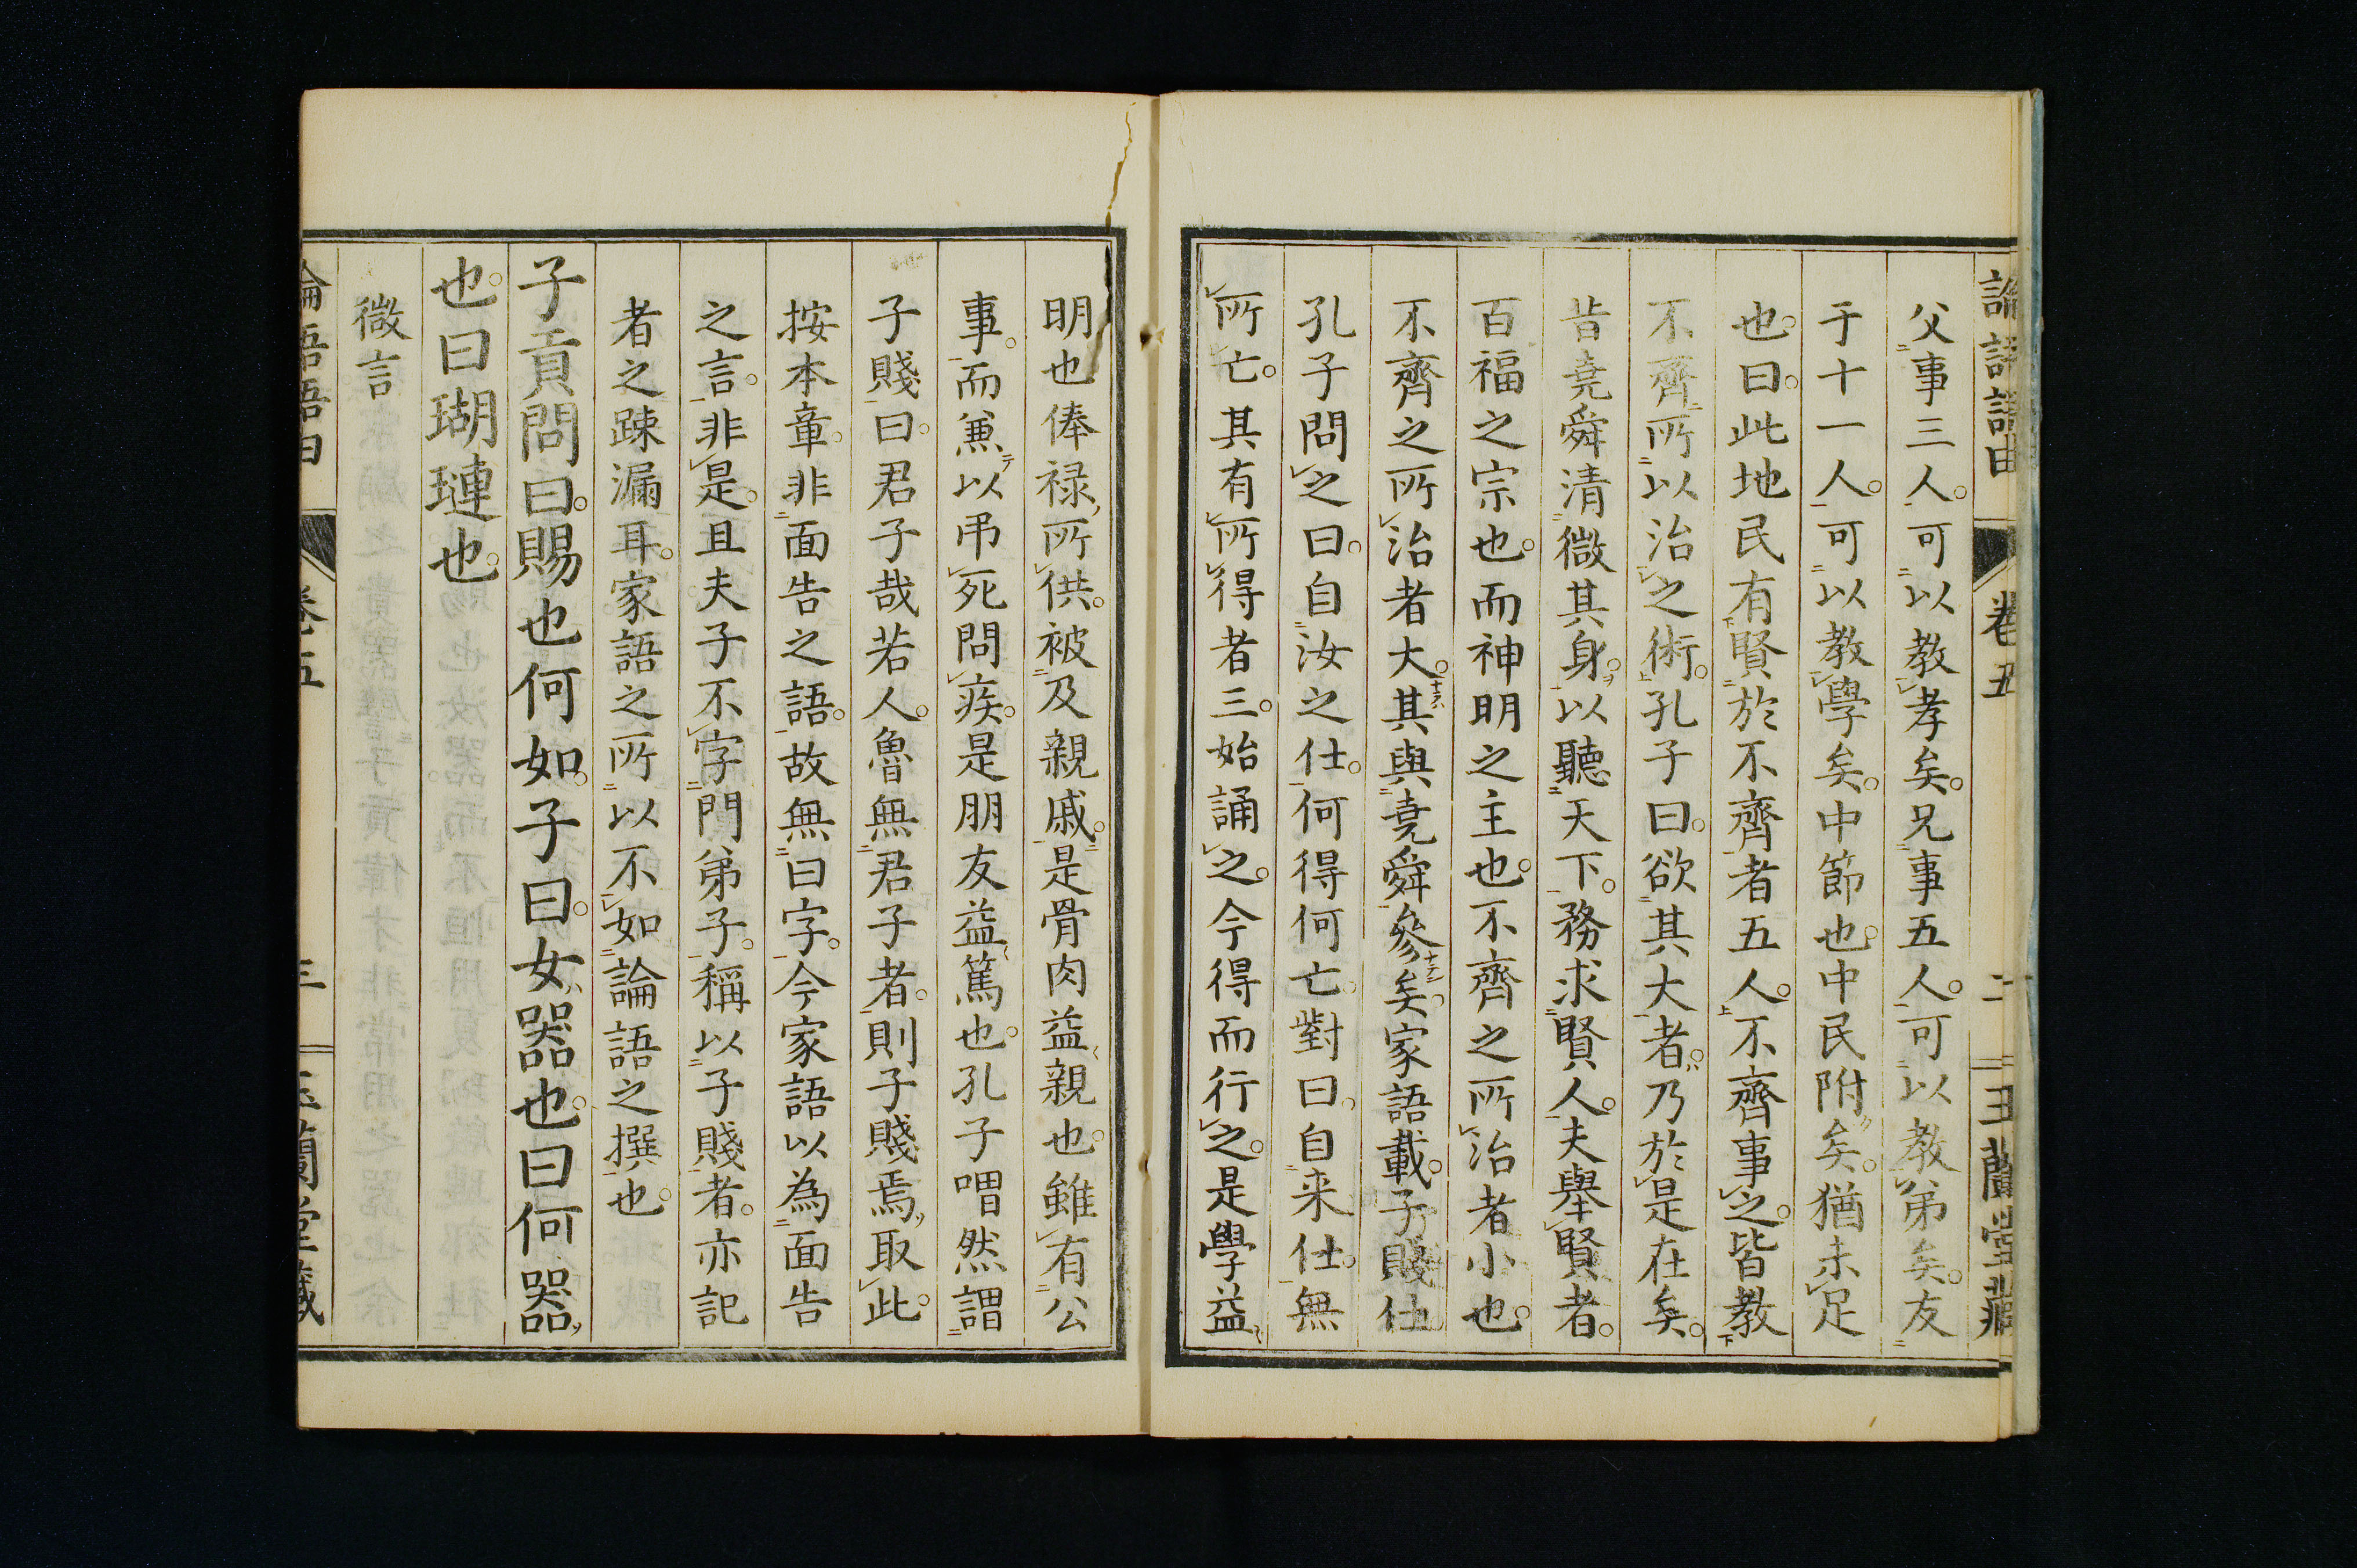 論語語由 卷五 二 玉蘭堂藏
父事三人。可以教孝矣。兄事五人。可以教弟矣。友
于十一人。可以教學矣。中節也。中民附矣。猶未足
也。曰。此地民有賢於不齊者五人。不齊事之。皆教
不齊所以治之術。孔子曰。欲其大者。乃於是在矣。
昔堯舜清微其身。以聽天下。務求賢人。夫舉賢者。
百福之宗也。而神明之主也。不齊之所治者小也。
不齊之所治者大。其與堯舜參矣。家語載。子賤仕
孔子問之曰。自汝之仕。何得何亡。對曰。自来仕。無
所亡。其有所得者三。始誦之。今得而行之。是學益
明也俸禄所供。被及親戚。是骨肉益親也。雖有公
事。而兼以弔死問疾。是朋友益篤也。孔子喟然謂
子賤曰。君子哉若人。魯無君子者。則子賤焉取此。
按本章。非面告之語。故無曰字。今家語以為面告
之言。非是。且夫子不字門弟子。稱以子賤者。亦記
者之踈漏耳。家語之所以不如論語之撰也。
子貢問曰。賜也何如。子曰。女器也。曰何器
也。曰瑚璉也。
微言
論語語由 卷五 三 玉蘭堂藏